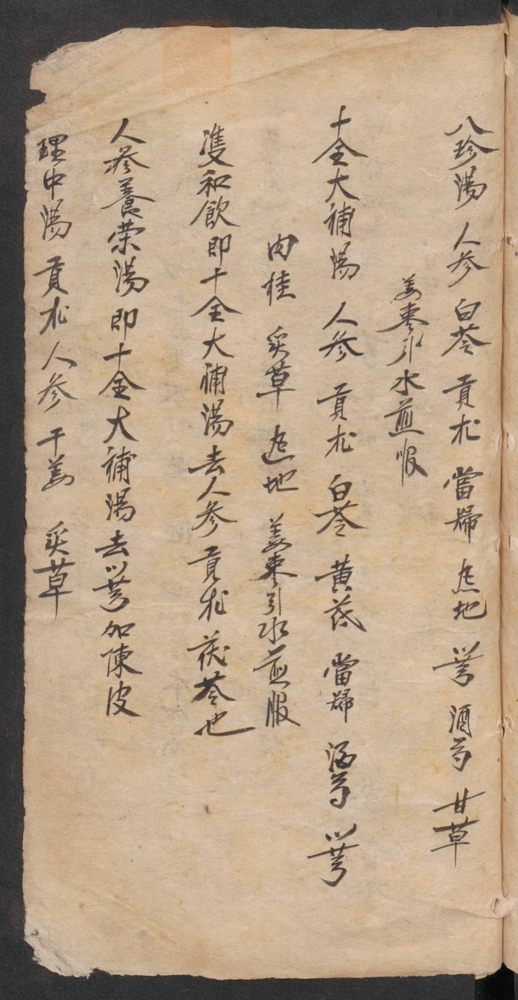 八珍湯 人参 白苓 貢朮 當歸 庄地 芎 酒芍 甘草
姜枣引水煎服
十全大補湯 人参 貢朮 白苓 黄芪 當歸 酒芍 川芎
肉桂 炙草 庄地 姜枣引水煎服
隻和飲即十全大補湯去人参貢朮茯苓也
人参養荣湯即十全大補湯去川芎加陳皮
理中湯 貢朮 人参 干姜 炙草